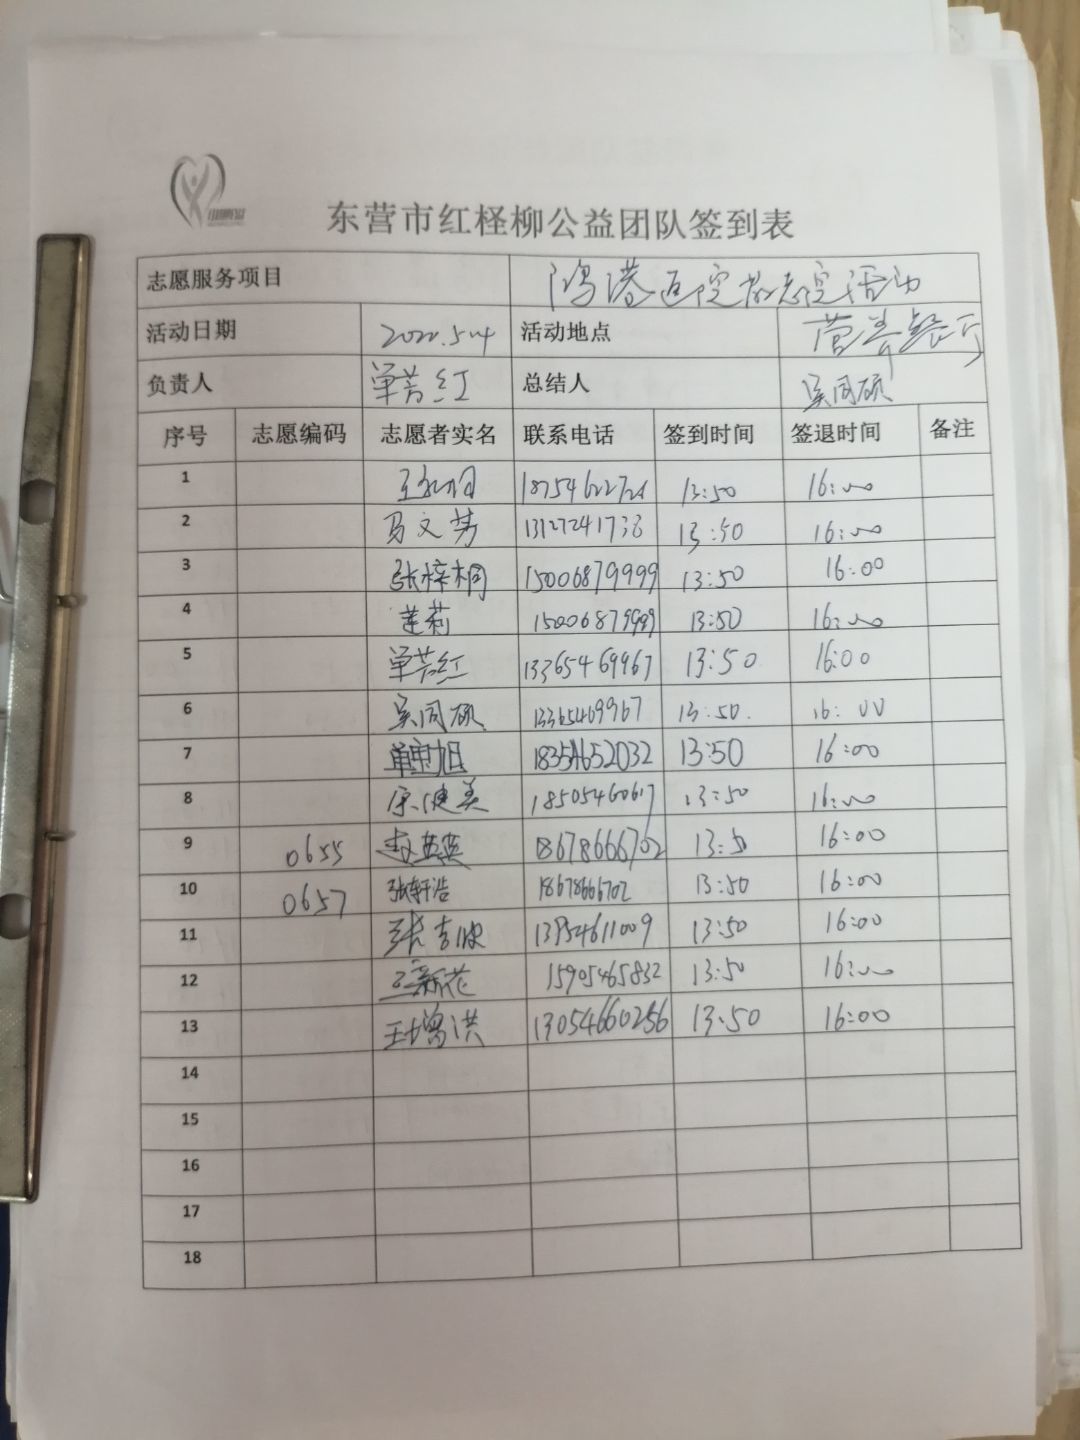 东营市红柽柳公益团队签到表
志愿服务项目
活动日期 2022.5.14 活动地点 营养餐厅
负责人 单芳红 总结人 吴同硕
序号 志愿编码 志愿者实名 联系电话 签到时间 签退时间 备注
1 13:50 16:00
2 马文芳 13127241733 13:50 16:00
3 张梓桐 15006879999 13:50 16:00
4 莲莉 15006879999 13:50 16:00
5 单芳红 13365469967 13:50 16:00
6 吴同硕 13365469967 13:50. 16:00
7 18354652032 13:50 16:00
8 宋健美 18505460617 13:50 16:00
9 0655 赵英英 18678666702 13:50 16:00
10 0657 张轩浩 18678666702 13:50 16:00
11 13954611009 13:50 16:00
12 王新花 15905465832 13:50 16:00
13 王增洪 13054660256 13:50 16:00
14
15
16
17
18